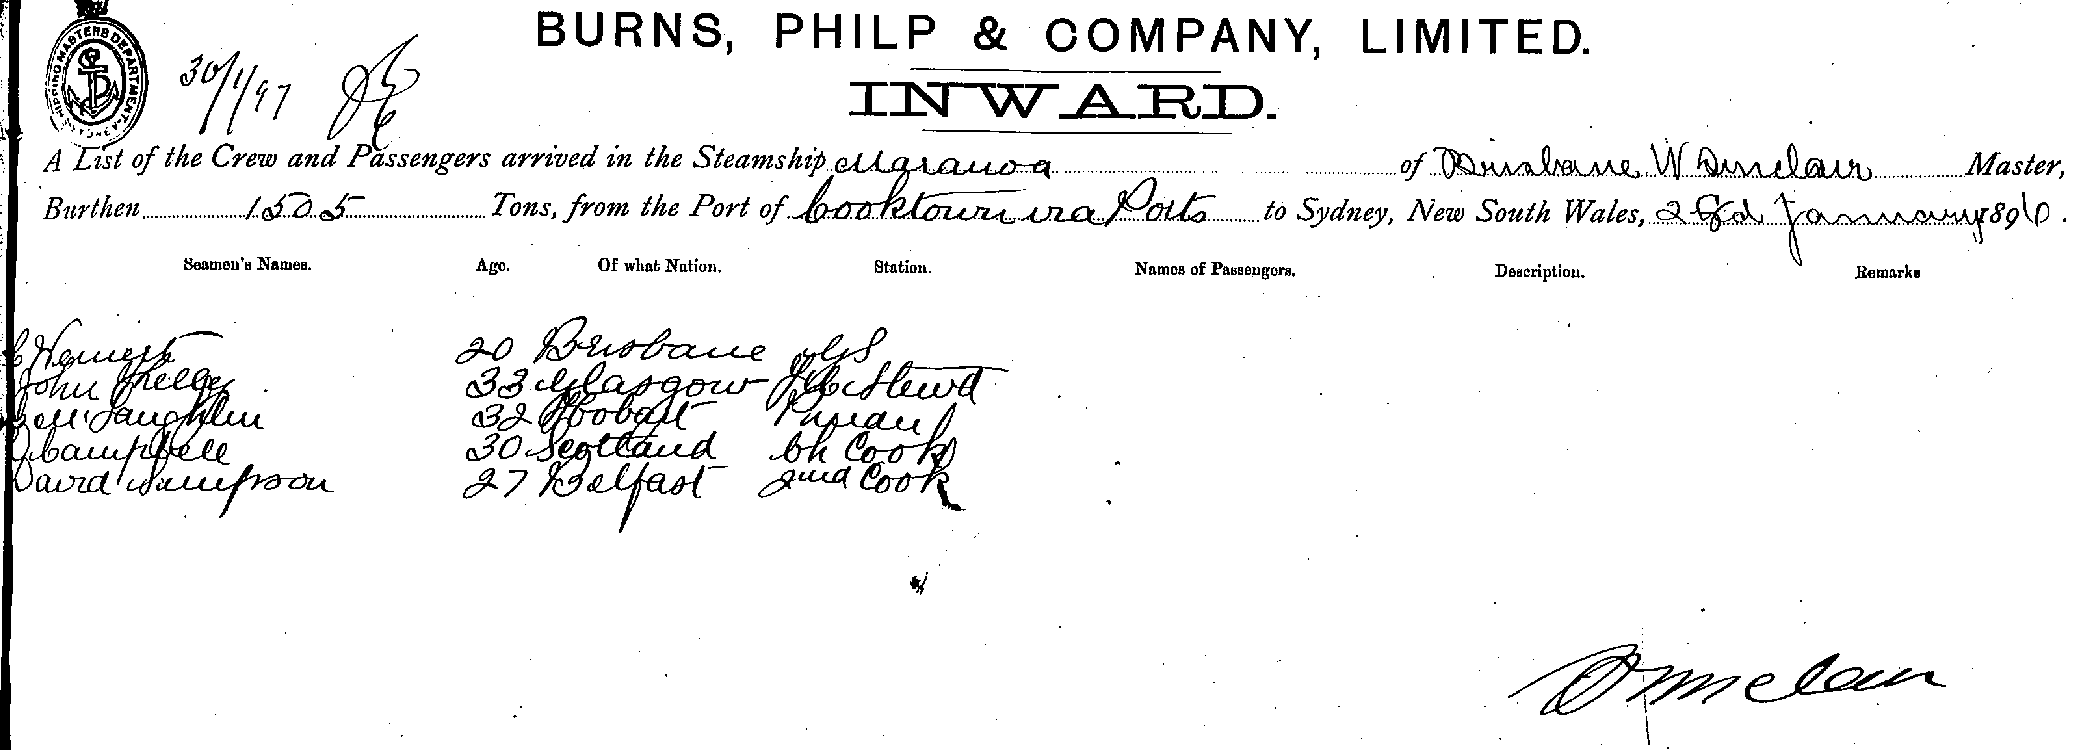 BURNS, PHILP & COMPANY, LIMITED.
SHIPPING MASTERS DEPARTMENT
30/1/97
INWARD.
A List of the Crew and Passengers arrived in the Steamship Maranoa of Brisbane W Sinclair Master,
Burthen 1505 Tons, from the Port of Cooktown via Ports to Sydney, New South Wales, January 189
Seamen's Names. Age. Of what Nation. Station. Names of Passengers. Description. Remarks
20 Brisbane
John 33 Glasgow Stewd
McLaughlin 32 Hobart
Campbell 30 Scotland Ch Cook
David Sampson 27 Belfast 2nd Cook
Sinclair